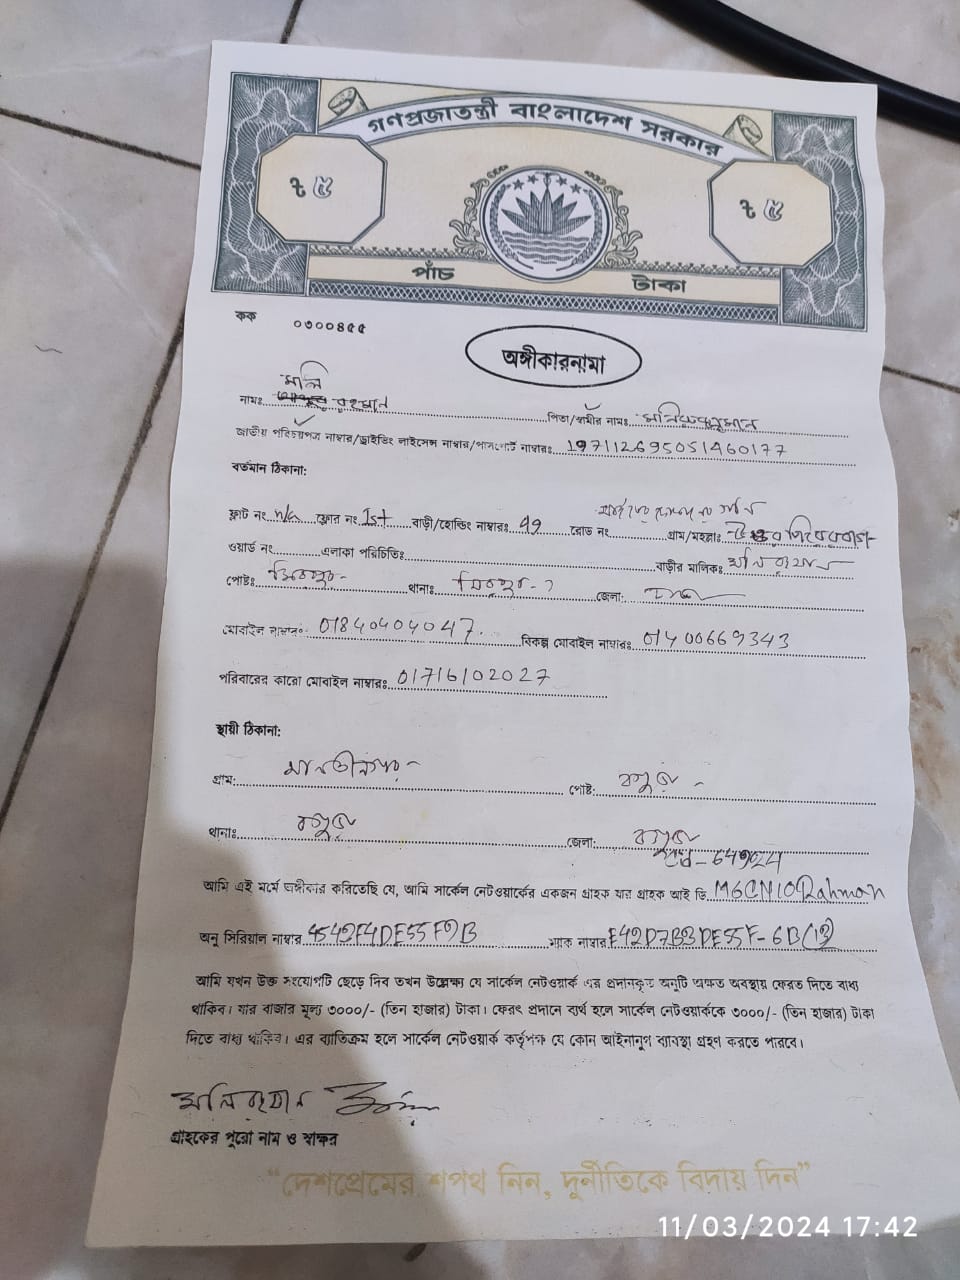 গণপ্রজাতন্ত্রী বাংলাদেশ সরকার
৳ ৫ ৳ ৫
পাঁচ টাকা
কক ০৩০০৪৫৫
অঙ্গীকারনামা
মনি
নামঃ রহমান পিতা/স্বামীর নামঃ
জাতীয় পরিচয়পত্র নাম্বার/ড্রাইভিং লাইসেন্স নাম্বার/পাসপোর্ট নাম্বারঃ 197112695051460177
বর্তমান ঠিকানা:
ফ্লাট নং n/a ফ্লোর নং 1st বাড়ী/হোল্ডিং নাম্বারঃ 49 রোড নং গ্রাম/মহল্লাঃ
ওয়ার্ড নং এলাকা পরিচিতিঃ বাড়ীর মালিকঃ মনি রহমান
পোষ্টঃ মিরপুর- থানাঃ মিরপুর- জেলা: ঢাকা
মোবাইল নাম্বারঃ 01840404047. বিকল্প মোবাইল নাম্বারঃ 01400669343
পরিবারের কারো মোবাইল নাম্বারঃ 01716102027
স্থায়ী ঠিকানা:
গ্রাম: পোষ্ট: বগুড়া -
থানাঃ বগুড়া জেলা: বগুড়া
আমি এই মর্মে অঙ্গীকার করিতেছি যে, আমি সার্কেল নেটওয়ার্কের একজন গ্রাহক যার গ্রাহক আই ডি M6CN10Rahman
অনু সিরিয়াল নাম্বার ম্যাক নাম্বার
আমি যখন উক্ত সংযোগটি ছেড়ে দিব তখন উল্লেক্ষ্য যে সার্কেল নেটওয়ার্ক এর প্রদানকৃত অনুটি অক্ষত অবস্থায় ফেরত দিতে বাধ্য
থাকিব। যার বাজার মূল্য ৩০০০/- (তিন হাজার) টাকা। ফেরৎ প্রদানে ব্যর্থ হলে সার্কেল নেটওয়ার্ককে ৩০০০/- (তিন হাজার) টাকা
দিতে বাধ্য থাকিব। এর ব্যতিক্রম হলে সার্কেল নেটওয়ার্ক কর্তৃপক্ষ যে কোন আইনানুগ ব্যাবস্থা গ্রহণ করতে পারবে।
মনি রহমান
গ্রাহকের পুরো নাম ও স্বাক্ষর
“দেশপ্রেমের শপথ নিন, দুর্নীতিকে বিদায় দিন”
11/03/2024 17:42